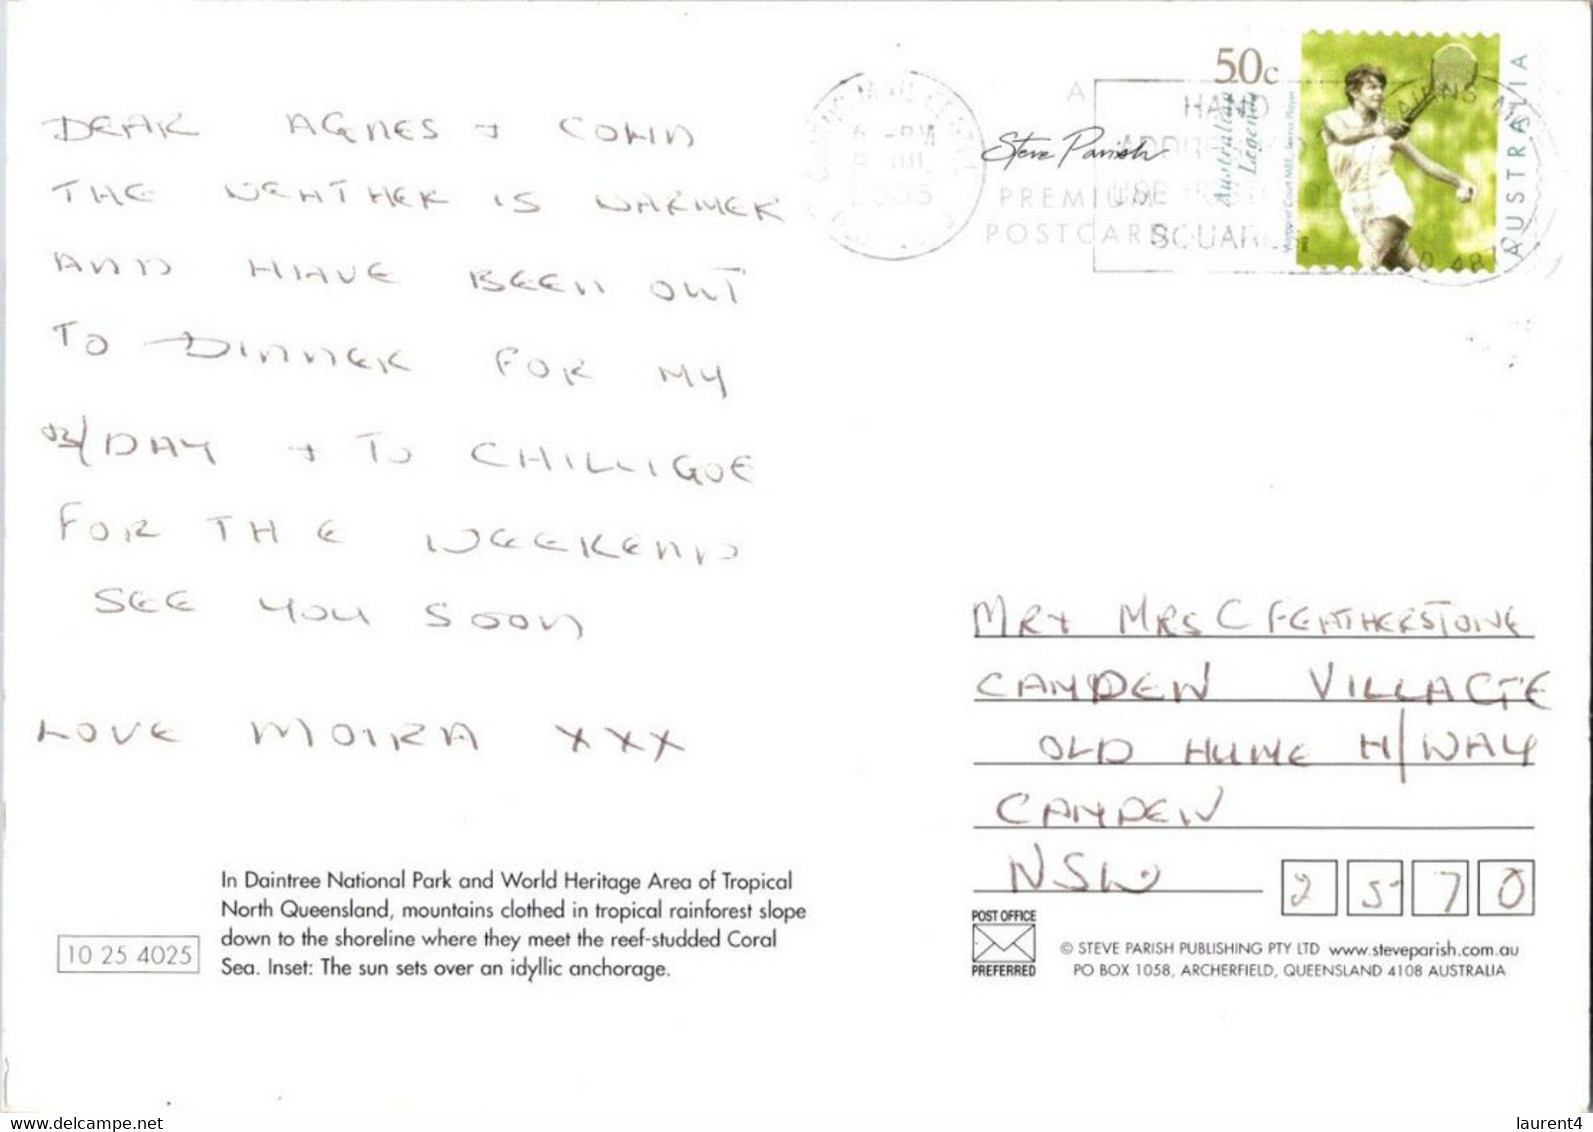 DEAR AGNES + COLIN
THE WEATHER IS WARMER
AND HAVE BEEN OUT
TO DINNER FOR MY
B/DAY + TO CHILLIGOE
FOR THE WEEKEND
SEE YOU SOON
LOVE MOIRA XXX
In Daintree National Park and World Heritage Area of Tropical
North Queensland, mountains clothed in tropical rainforest slope
down to the shoreline where they meet the reef-studded Coral
Sea. Inset: The sun sets over an idyllic anchorage.
10 25 4025
50c
AUSTRALIA
Australian
Legends
Margaret Court MBE, Tennis Player
MAIL CENTRE
6 -PM
HAND
USE
SQUARES
CAIRNS
A
Steve Parish
PREMIUM
POSTCARD
MR + MRS C FEATHERSTONE
CAMDEN VILLAGE
OLD HUME H/WAY
CAMDEN
NSW 2570
POST OFFICE
PREFERRED
© STEVE PARISH PUBLISHING PTY LTD www.steveparish.com.au
PO BOX 1058, ARCHERFIELD, QUEENSLAND 4108 AUSTRALIA
www.delcampe.net
laurent4